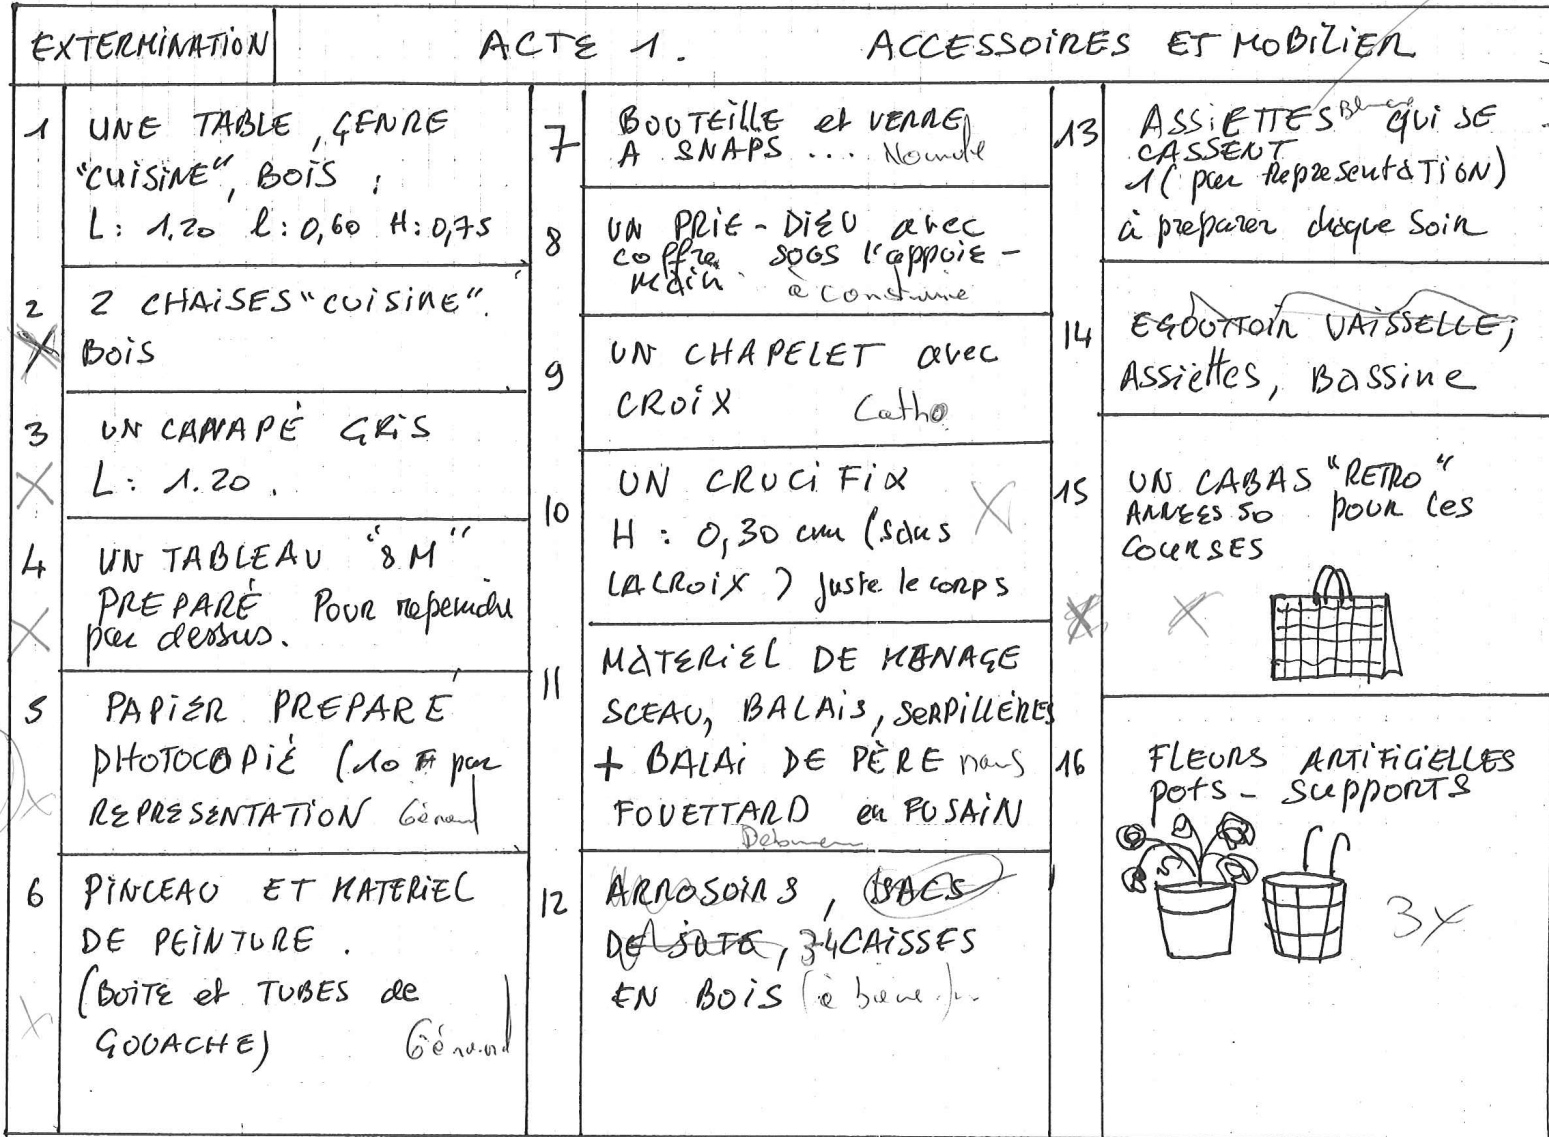 EXTERMINATION ACTE 1. ACCESSOIRES ET MOBILIER
1 UNE TABLE, GENRE
"CUISINE", BOIS ;
L: 1.20 l: 0,60 H: 0,75
2 2 CHAISES "CUISINE".
BOIS
3 UN CANAPÉ GRIS
L: 1.20.
4 UN TABLEAU "8 M"
PREPARÉ POUR repeindre
par dessus.
5 PAPIER PREPARÉ
PHOTOCOPIÉ (10 par
REPRESENTATION Gérard
6 PINCEAU ET MATERIEL
DE PEINTURE.
(BOITE et TUBES de
GOUACHE) Gérard
7 BOUTEILLE et VERRE
A SNAPS ...
8 UN PRIE-DIEU avec
coffre sous l'appuie-
main à construire
9 UN CHAPELET avec
CROIX Catho
10 UN CRUCIFIX
H : 0,30 cm (sans
LA CROIX) juste le corps
11 MATERIEL DE MENAGE
SCEAU, BALAIS, SERPILLÈRES
+ BALAI DE PÈRE
FOUETTARD en FUSAIN
12 ARROSOIRS, SACS
DE JUTE, 3-4 CAISSES
EN BOIS
13 ASSIETTES QUI SE
CASSENT
1 (par RepresentATION)
à preparer chaque soir
14 EGOUTTOIR VAISSELLE,
Assiettes, Bassine
15 UN CABAS "RETRO"
ANNEES 50 pour les
COURSES
16 FLEURS ARTIFICIELLES
POTS - SUPPORTS
3x